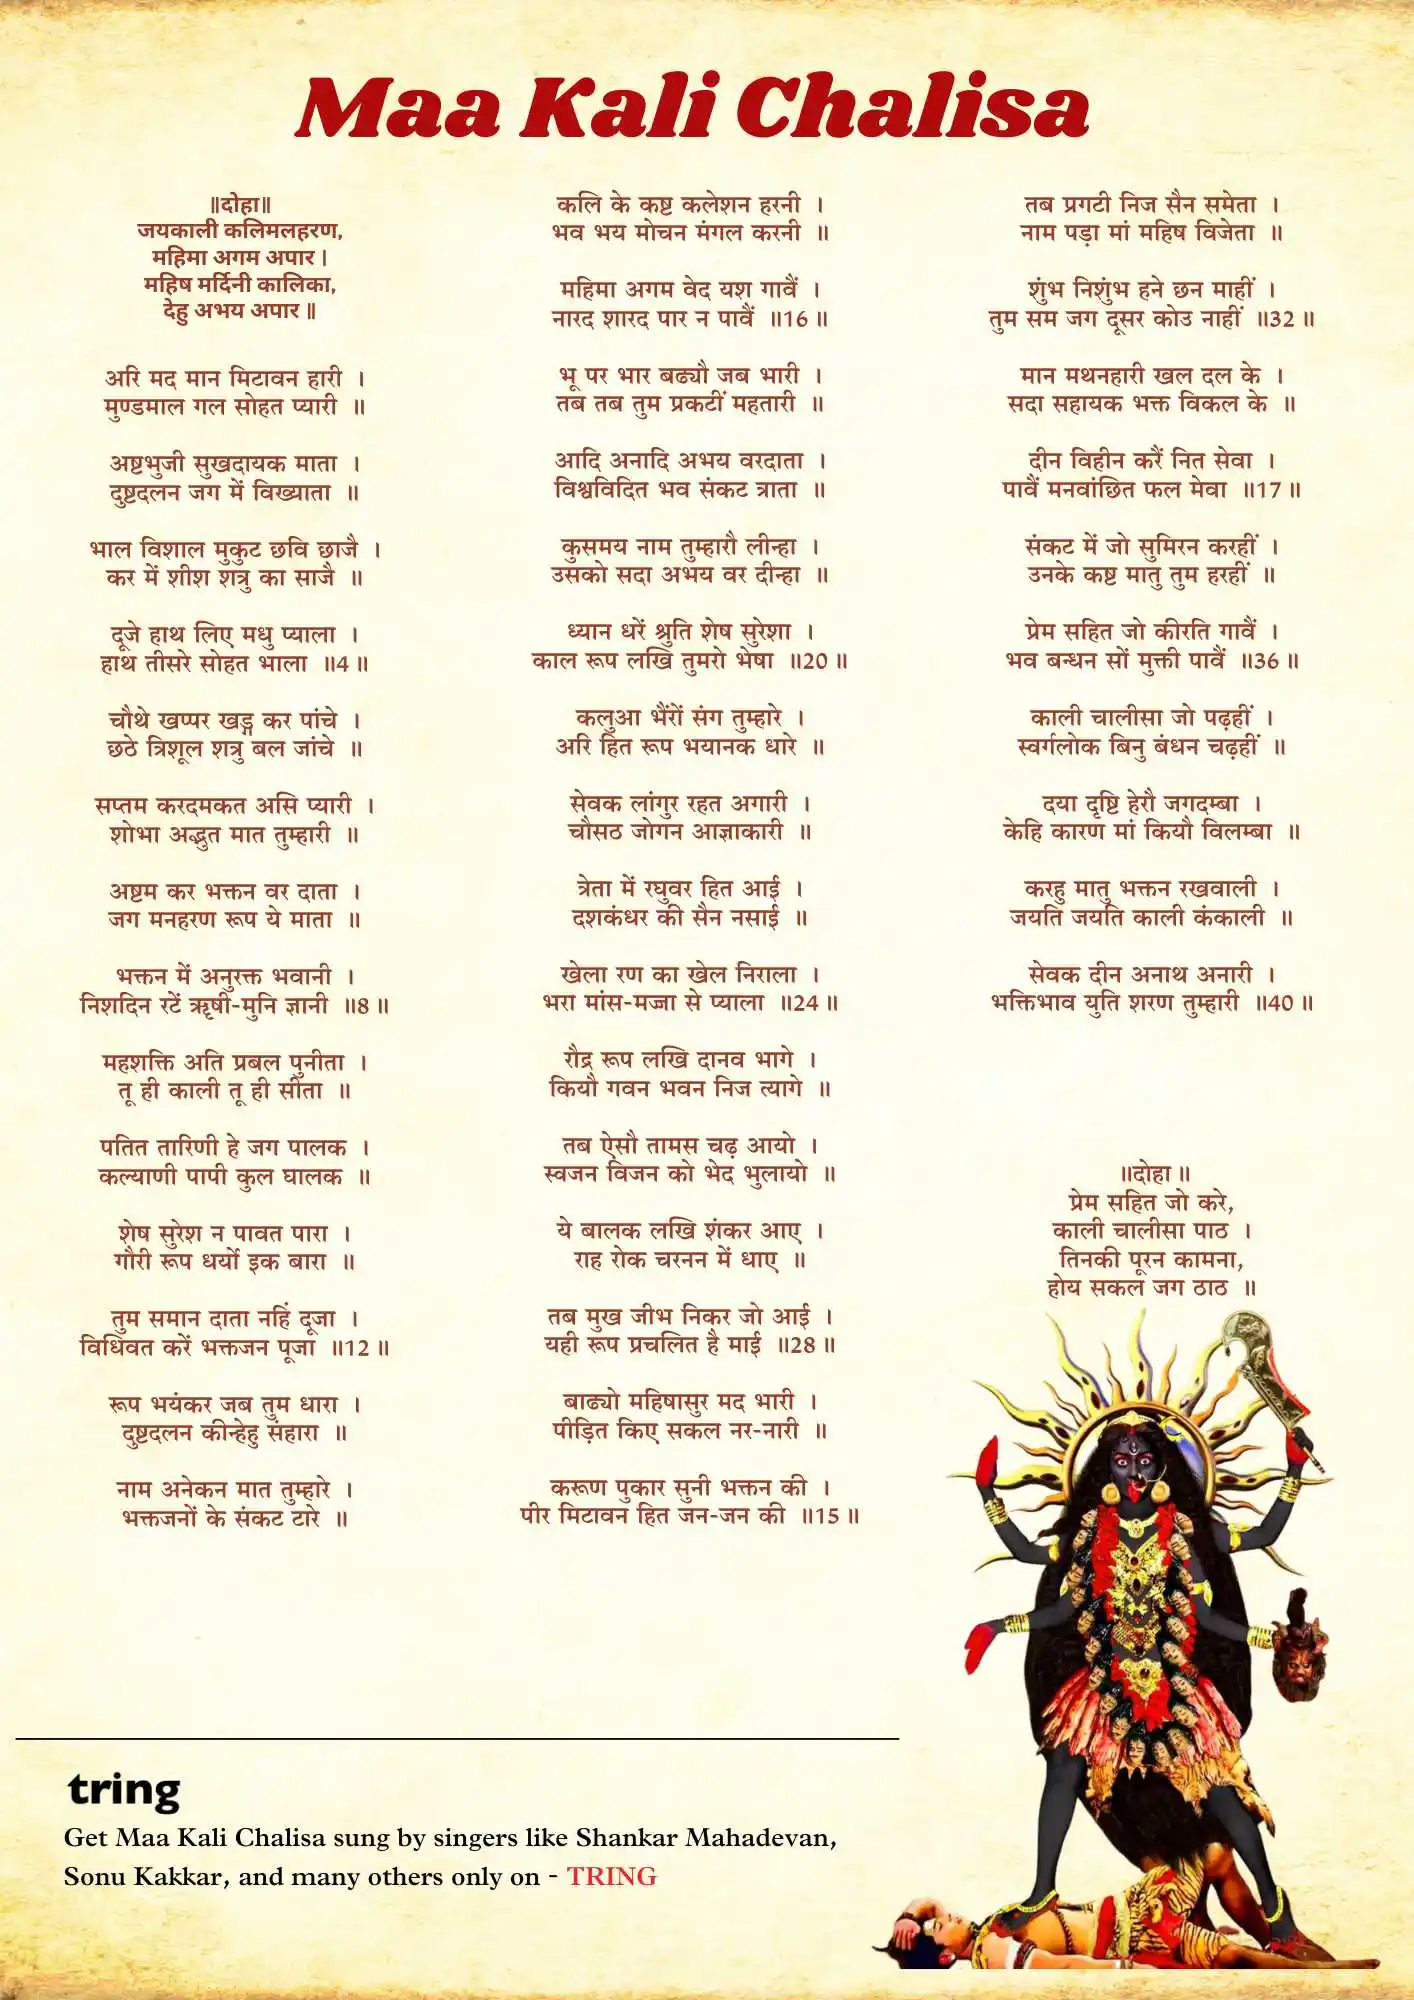 Maa Kali Chalisa
॥दोहा॥
जयकाली कलिमलहरण,
महिमा अगम अपार।
महिष मर्दिनी कालिका,
देहु अभय अपार॥
अरि मद मान मिटावन हारी ।
मुण्डमाल गल सोहत प्यारी ॥
अष्टभुजी सुखदायक माता ।
दुष्टदलन जग में विख्याता ॥
भाल विशाल मुकुट छवि छाजै ।
कर में शीश शत्रु का साजै ॥
दूजे हाथ लिए मधु प्याला ।
हाथ तीसरे सोहत भाला ॥4॥
चौथे खप्पर खड्ग कर पांचे ।
छठे त्रिशूल शत्रु बल जांचे ॥
सप्तम करदमकत असि प्यारी ।
शोभा अद्भुत मात तुम्हारी ॥
अष्टम कर भक्तन वर दाता ।
जग मनहरण रूप ये माता ॥
भक्तन में अनुरक्त भवानी ।
निशदिन रटें ॠषी-मुनि ज्ञानी ॥8॥
महशक्ति अति प्रबल पुनीता ।
तू ही काली तू ही सीता ॥
पतित तारिणी हे जग पालक ।
कल्याणी पापी कुल घालक ॥
शेष सुरेश न पावत पारा ।
गौरी रूप धर्यो इक बारा ॥
तुम समान दाता नहिं दूजा ।
विधिवत करें भक्तजन पूजा ॥12॥
रूप भयंकर जब तुम धारा ।
दुष्टदलन कीन्हेहु संहारा ॥
नाम अनेकन मात तुम्हारे ।
भक्तजनों के संकट टारे ॥
कलि के कष्ट कलेशन हरनी ।
भव भय मोचन मंगल करनी ॥
महिमा अगम वेद यश गावैं ।
नारद शारद पार न पावैं ॥16॥
भू पर भार बढ्यौ जब भारी ।
तब तब तुम प्रकटीं महतारी ॥
आदि अनादि अभय वरदाता ।
विश्वविदित भव संकट त्राता ॥
कुसमय नाम तुम्हारौ लीन्हा ।
उसको सदा अभय वर दीन्हा ॥
ध्यान धरें श्रुति शेष सुरेशा ।
काल रूप लखि तुमरो भेषा ॥20॥
कलुआ भैंरों संग तुम्हारे ।
अरि हित रूप भयानक धारे ॥
सेवक लांगुर रहत अगारी ।
चौसठ जोगन आज्ञाकारी ॥
त्रेता में रघुवर हित आई ।
दशकंधर की सैन नसाई ॥
खेला रण का खेल निराला ।
भरा मांस-मज्जा से प्याला ॥24॥
रौद्र रूप लखि दानव भागे ।
कियौ गवन भवन निज त्यागे ॥
तब ऐसौ तामस चढ़ आयो ।
स्वजन विजन को भेद भुलायो ॥
ये बालक लखि शंकर आए ।
राह रोक चरनन में धाए ॥
तब मुख जीभ निकर जो आई ।
यही रूप प्रचलित है माई ॥28॥
बाढ्यो महिषासुर मद भारी ।
पीड़ित किए सकल नर-नारी ॥
करूण पुकार सुनी भक्तन की ।
पीर मिटावन हित जन-जन की ॥15॥
तब प्रगटी निज सैन समेता ।
नाम पड़ा मां महिष विजेता ॥
शुंभ निशुंभ हने छन माहीं ।
तुम सम जग दूसर कोउ नाहीं ॥32॥
मान मथनहारी खल दल के ।
सदा सहायक भक्त विकल के ॥
दीन विहीन करैं नित सेवा ।
पावैं मनवांछित फल मेवा ॥17॥
संकट में जो सुमिरन करहीं ।
उनके कष्ट मातु तुम हरहीं ॥
प्रेम सहित जो कीरति गावैं ।
भव बन्धन सों मुक्ती पावैं ॥36॥
काली चालीसा जो पढ़हीं ।
स्वर्गलोक बिनु बंधन चढ़हीं ॥
दया दृष्टि हेरौ जगदम्बा ।
केहि कारण मां कियौ विलम्बा ॥
करहु मातु भक्तन रखवाली ।
जयति जयति काली कंकाली ॥
सेवक दीन अनाथ अनारी ।
भक्तिभाव युति शरण तुम्हारी ॥40॥
॥दोहा॥
प्रेम सहित जो करे,
काली चालीसा पाठ ।
तिनकी पूरन कामना,
होय सकल जग ठाठ ॥
tring
Get Maa Kali Chalisa sung by singers like Shankar Mahadevan,
Sonu Kakkar, and many others only on - TRING